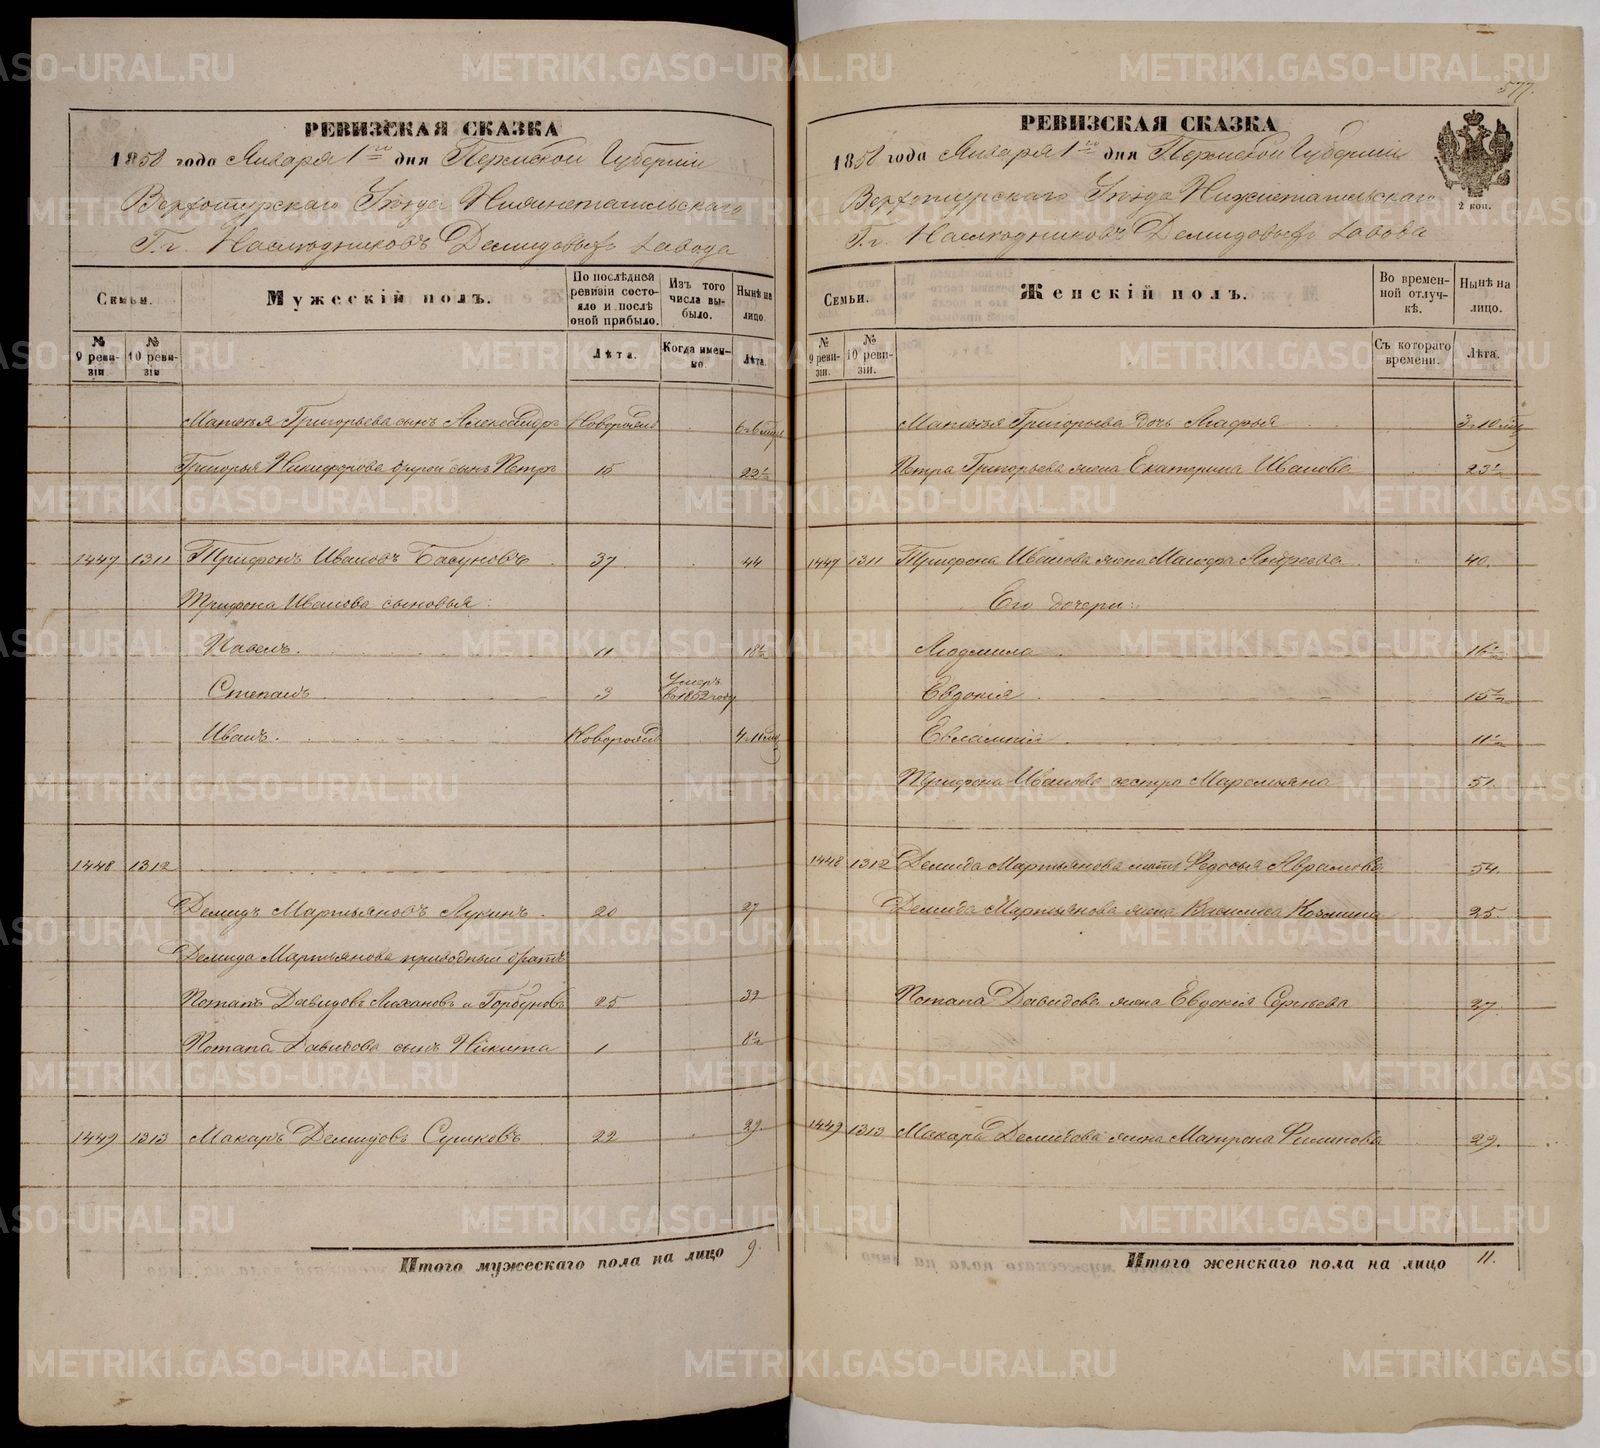 РЕВИЗСКАЯ СКАЗКА
1858 года Января 1го дня Пермской Губернии
Верхотурскаго Уѣзда Нижнетагильскаго
Г.г. Наслѣдниковъ Демидовыхъ Завода
Семьи.
Мужескій полъ.
По послѣдней ревизіи состояло и послѣ оной прибыло.
Изъ того числа выбыло.
Нынѣ на лицо.
№ 9 ревизіи.
№ 10 ревизіи
Лѣта.
Когда именно.
Лѣта.
Матвѣя Григорьева сынъ Александръ Новорожд 6 6 мѣс
Григорья Никифорова другой сынъ Петръ 15 22½
1447 1311 Трифонъ Ивановъ Басуновъ 37 44
Трифона Иванова сыновья:
Павелъ 11 18½
Степанъ 3 Умеръ в 1852 году
Иванъ Новорожд 4 11 мѣс
1448 1312
Демидъ Мартьяновъ Лукинъ 20 27
Демида Мартьянова приводный братъ
Потапъ Давидовъ Лоханов и Горбуновъ 25 32
Потапа Давидова сынъ Никита 1 8½
1449 1313 Макаръ Демидовъ Сушковъ 22 29.
Итого мужескаго пола на лицо 9.
577.
РЕВИЗСКАЯ СКАЗКА
1858 года Января 1го дня Пермской Губерніи
Верхотурскаго Уѣзда Нижнетагильскаго
Г.г. Наслѣдниковъ Демидовыхъ Завода
2 коп.
Семьи.
Женскій полъ.
Во временной отлучкѣ.
Нынѣ на лицо.
№ 9 ревизіи.
№ 10 ревизіи.
Съ котораго времени.
Лѣта.
Матвѣя Григорьева дочь Агафья 3 10 мѣс
Петра Григорьева жена Екатерина Иванова 23½
1447 1311 Трифона Иванова жена Андреева 40.
Его дочери:
Людмила 16½
Евдокія 15½
Евлампія 11½
Трифона Иванова сестра Маремьяна 51.
1448 1312 Демида Мартьянова мать Федосья Аврамова 54.
Демида Мартьянова жена Василиса Козмина 25.
Потапа Давидова жена Евдокія Сергѣева 27.
1449 1313 Макара Демидова жена Матрона Филипова 29.
Итого женскаго пола на лицо 11.
METRIKI.GASO-URAL.RU